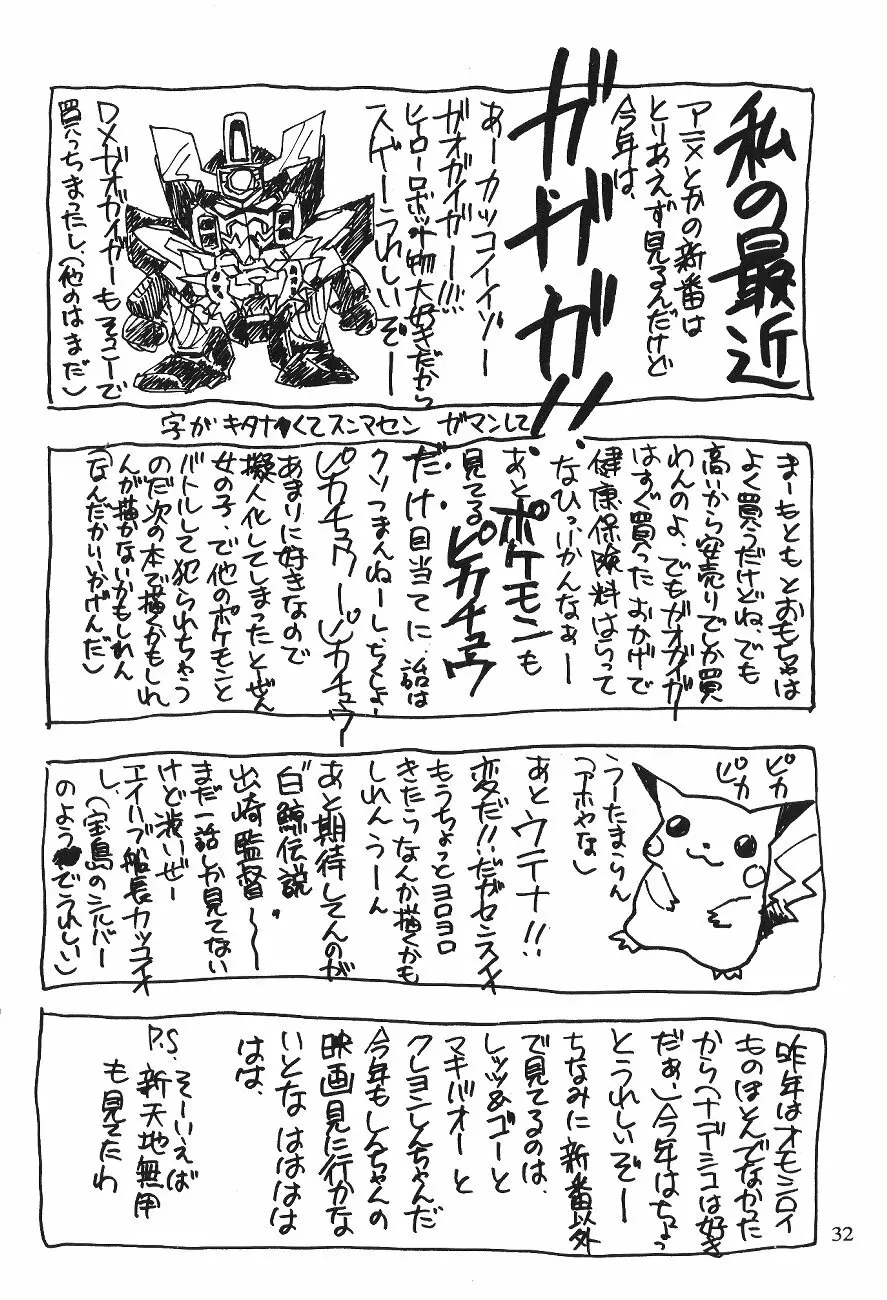 私の最近
アニメとかの新番は
とりあえず見るんだけど
今年は、
ガガガ!!
あーカッコイイゾー
ガオガイガー!!!
ヒーローロボット物大好きだから
スゲーうれしいぞー
DXガオガイガーもそっこーで
買っちまったし、(他のはまだ)
字がキタナくてスンマセン ガマンして
まーもともとおもちゃは
よく買うだけどね、でも
高いから安売りでしか買
わんのよ、でもガオガイガー
はすぐ買ったおかげで
健康保険料はらって
なひっ、いかんなぁー
あとポケモンも
見てる ピカチュウ
だけ目当てに、話は
クソつまんねーし、ちくしょー
ピカチュウーピカチュウー
あまりに好きなので
擬人化してしまったとーぜん
女の子、で他のポケモンと
バトルして犯られちゃう
のだ次の本で描くかもしれ
んが描かないかもしれん
(なんだかいいかげんだ)
ピカ
ピカ
うーたまらん
(アホやな)
あとウテナ!!
変だ!!だがセンスイイ
もうちょっとヨロヨロ
きたらなんか描くかも
しれんうーん
あと期待してんのが
"白鯨伝説"
出崎監督〜
まだ一話しか見てない
けど渋いぜー
エイハブ船長カッコイイ
し、(宝島のシルバー
のようでうれしい)
昨年はオモシロイ
ものほとんでなかった
から(ナデシコは好き
だぁー)今年はちょっ
とうれしいぞー
ちなみに新番以外
で見てるのは、
レッツ&ゴーと
マキバオーと
クレヨンしんちゃんだ
今年もしんちゃんの
映画見に行かな
いとな はははは
はは、
P.S. そーいえば
新天地無用
も見てたわ
32